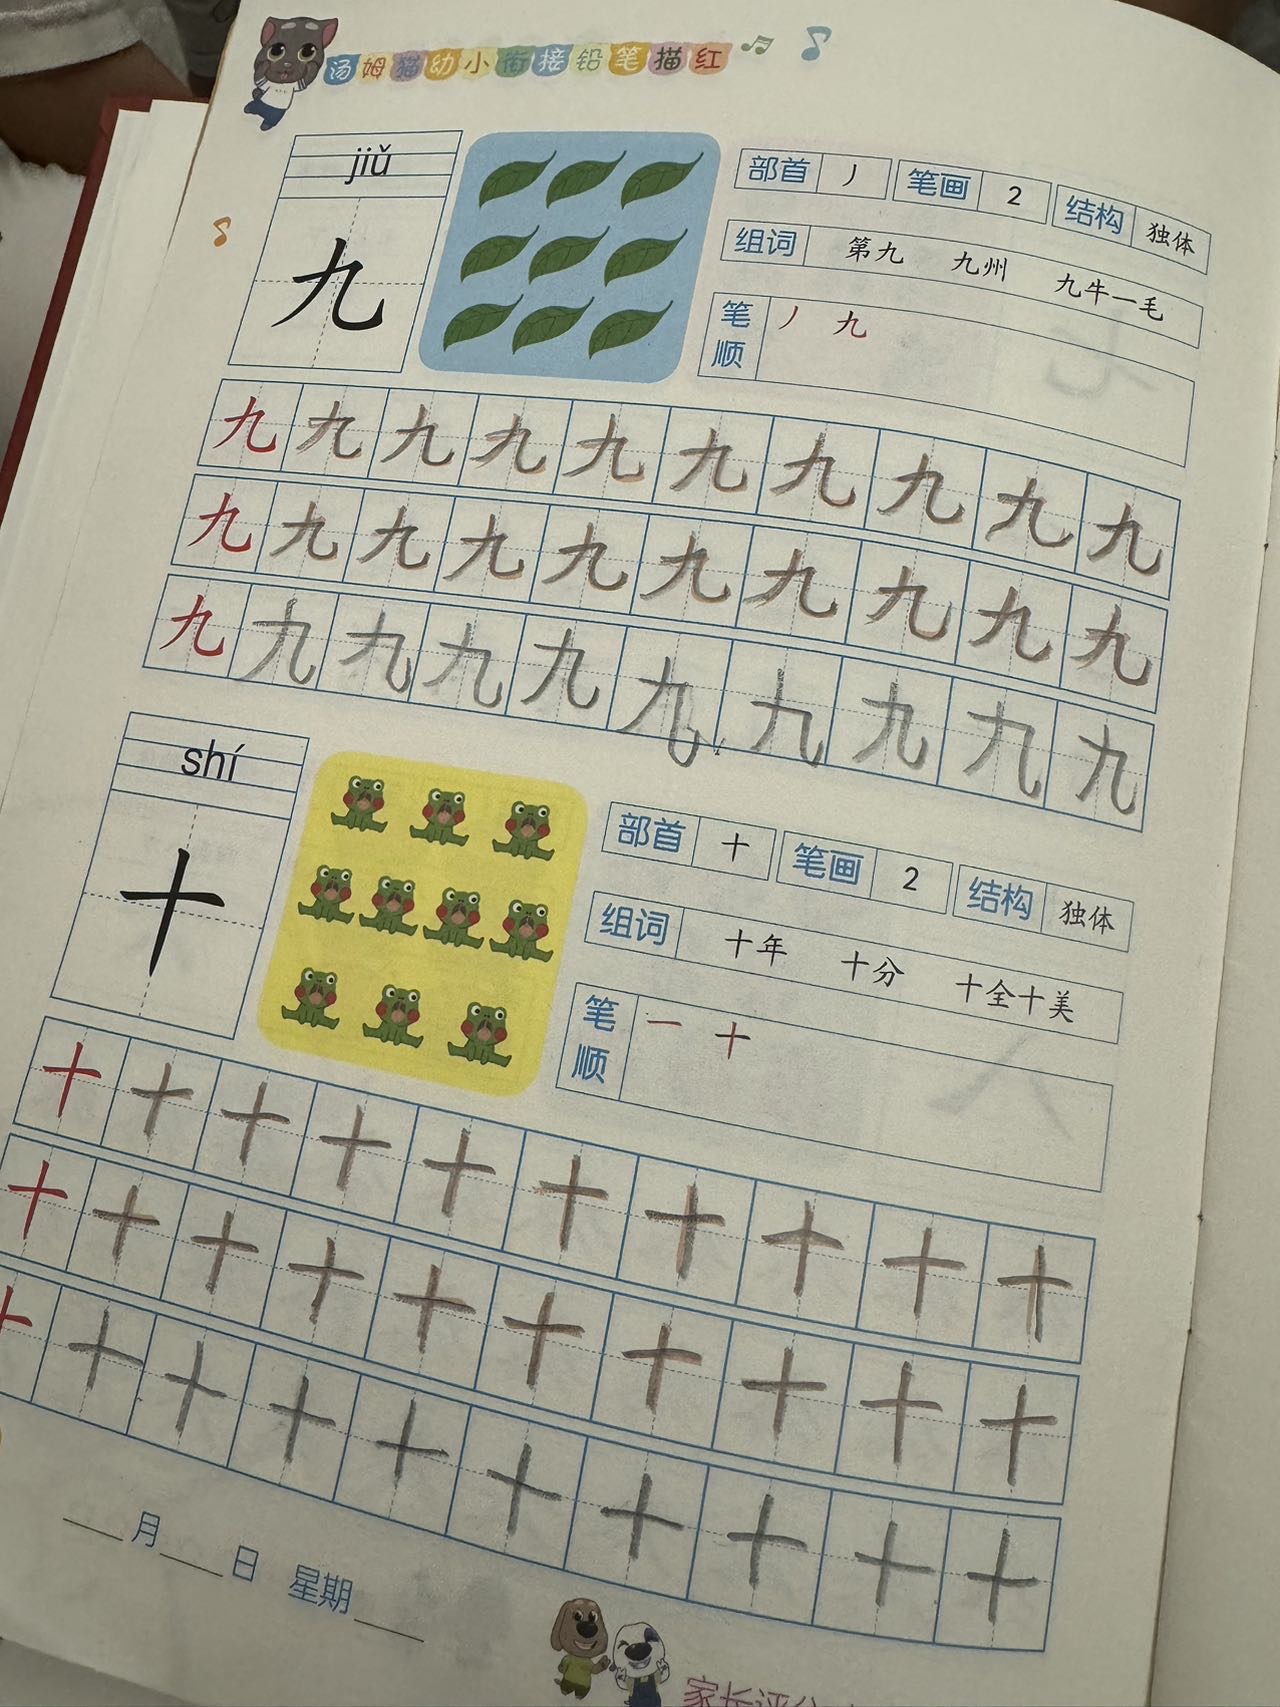 汤姆猫幼小衔接铅笔描红
jiǔ
九
部首 丿 笔画 2 结构 独体
组词 第九 九州 九牛一毛
笔顺 丿 九
九 九 九 九 九 九 九 九 九 九
九 九 九 九 九 九 九 九 九 九
九 九 九 九 九 九 九 九 九 九
shí
十
部首 十 笔画 2 结构 独体
组词 十年 十分 十全十美
笔顺 一 十
十 十 十 十 十 十 十 十 十 十
十 十 十 十 十 十 十 十 十 十
十 十 十 十 十 十 十 十 十 十
____月____日 星期____
家长评分